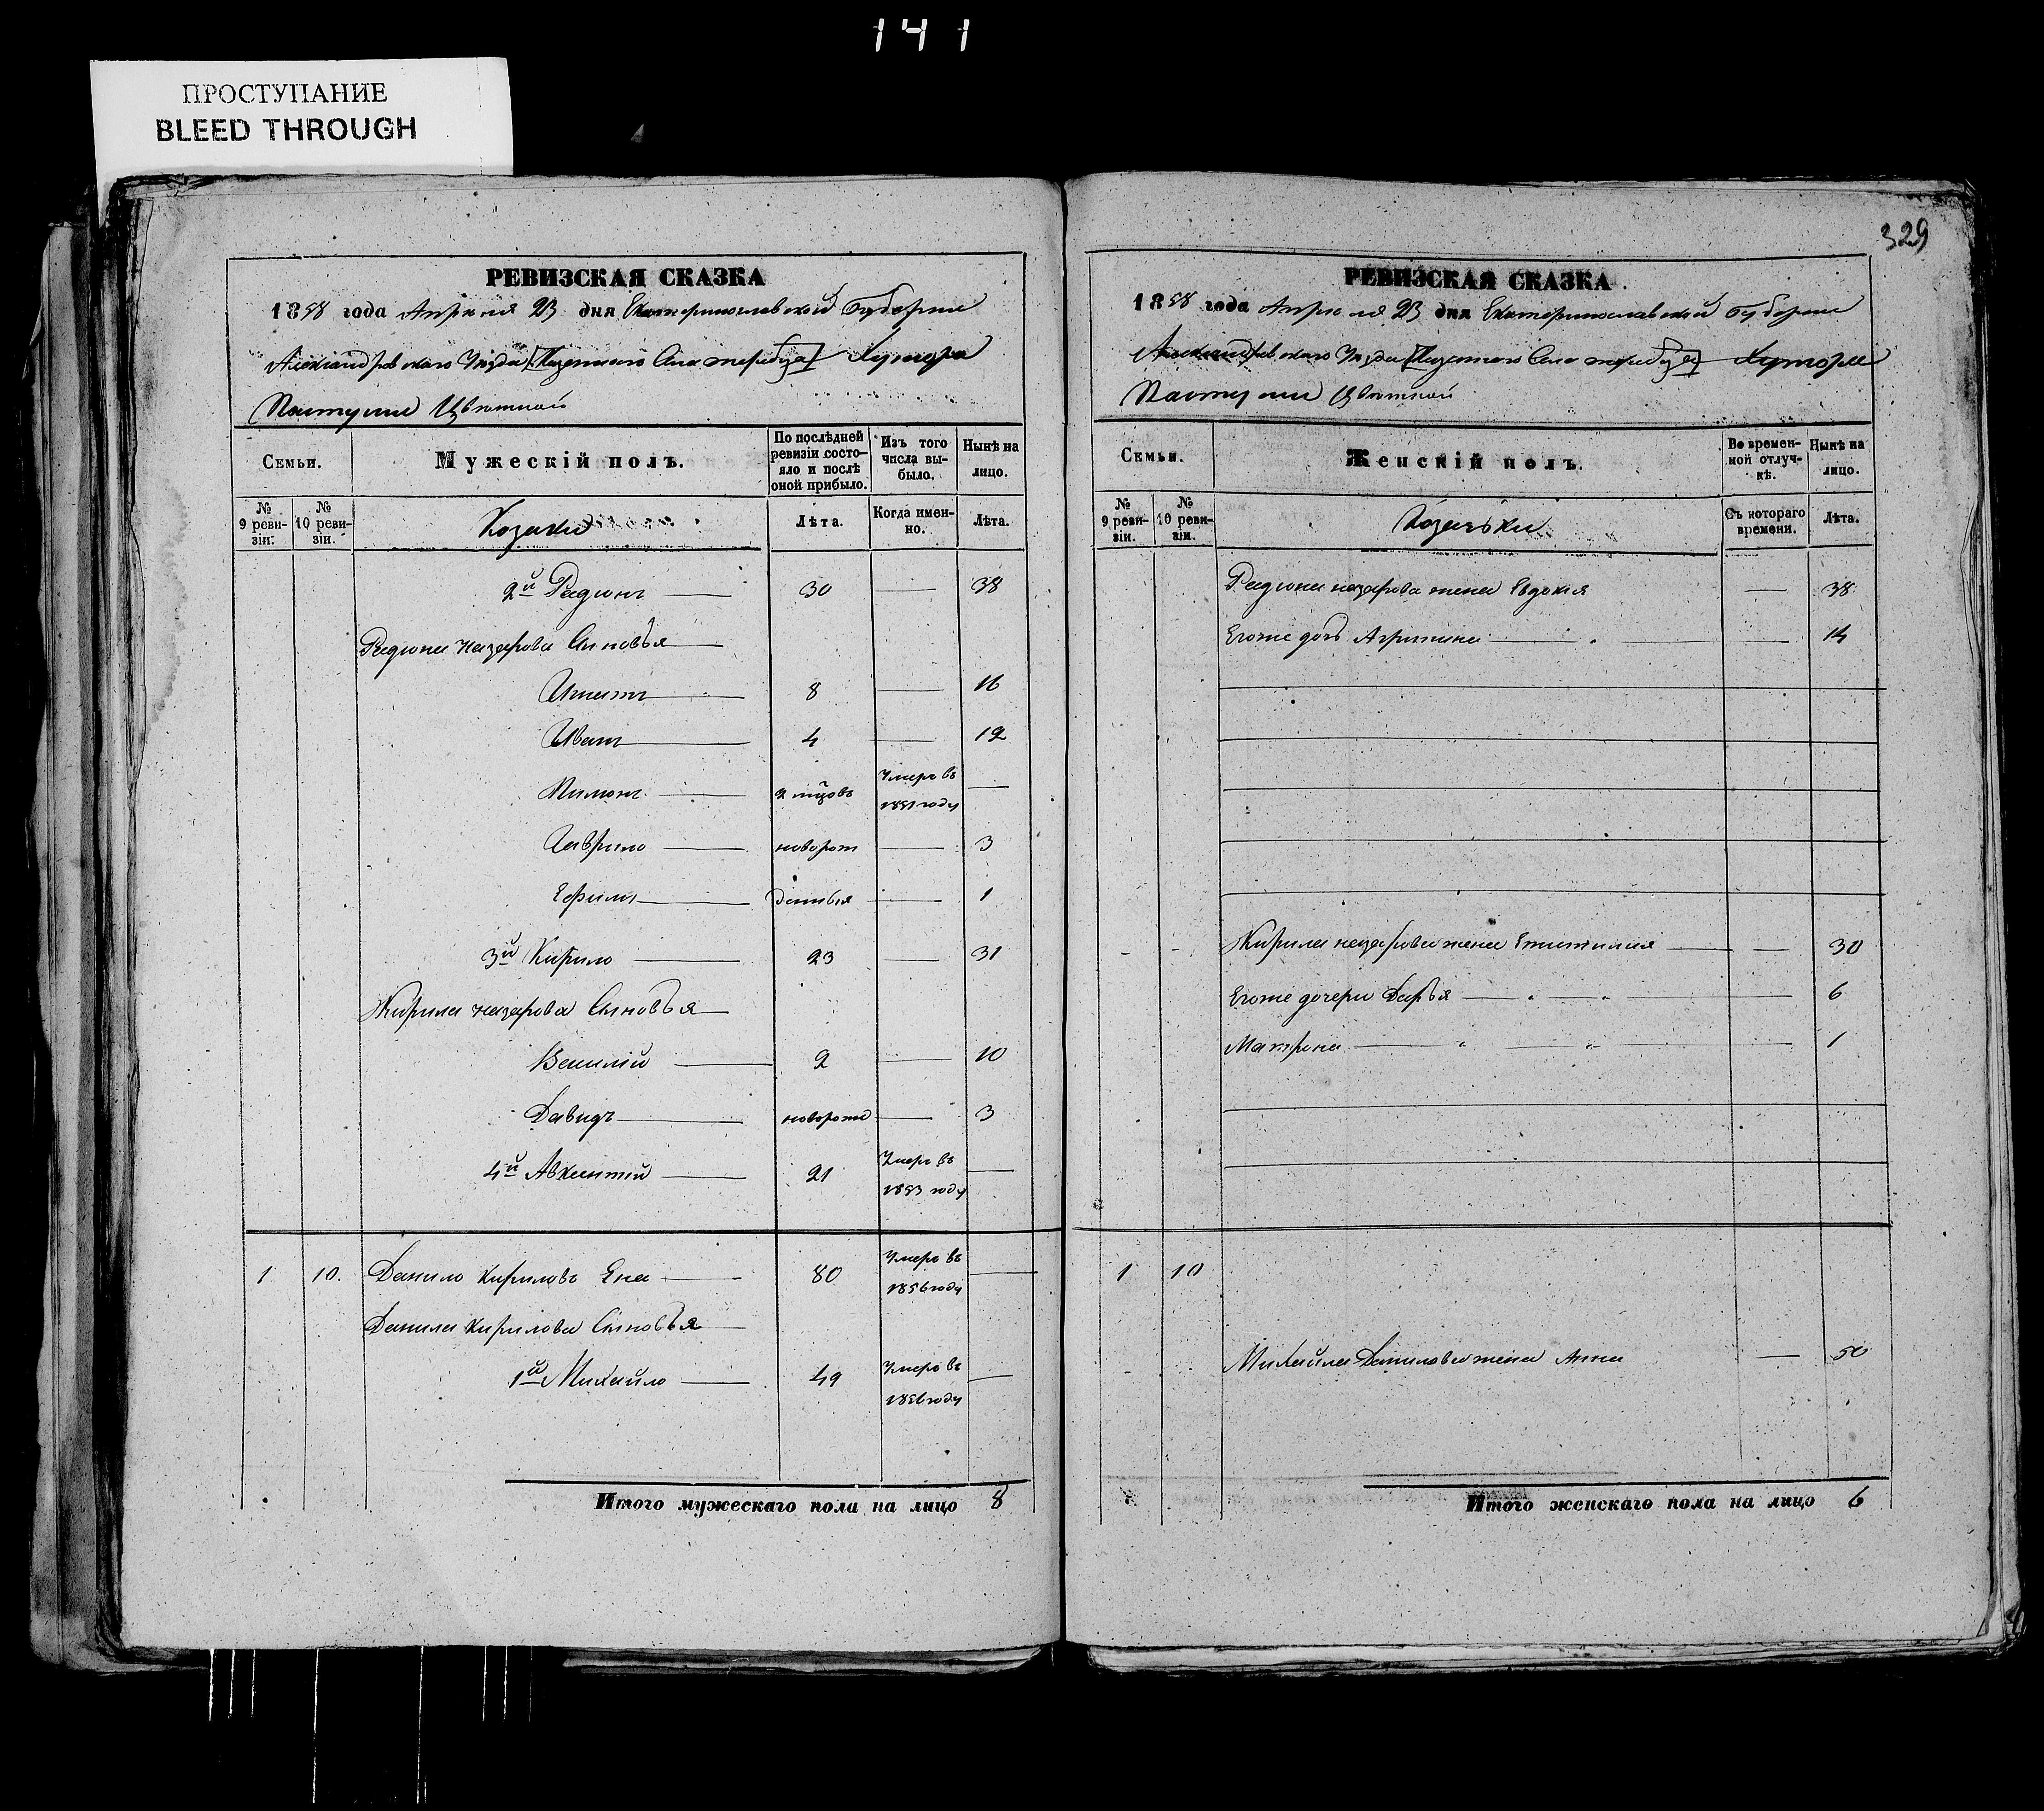 141
ПРОСТУПАНИЕ
BLEED THROUGH
РЕВИЗСКАЯ СКАЗКА
1858 года Апреля 23 дня Екатеринославской Губернии
Александровского Уезда [Казенного Села] Хутора
Цветной
Семьи.
Мужескій полъ.
По послѣдней ревизіи состо-
яло и послѣ оной прибыло.
Изъ того числа вы-
было.
Нынѣ на лицо.
№ 9 реви-
зіи.
№ 10 реви-
зіи.
Козаки
Лѣта.
Когда имен-
но.
Лѣта.
2й Радіонъ 30 — 38
Радіона Назарова Сыновья
Игнатъ 8 — 16
Иванъ 4 — 12
Пимонъ 2 мцовъ Умеръ въ 1851 году —
Гаврило новорож 3
Ефимъ денныя 1
3й Кирило 23 — 31
Кирила Назарова Сыновья
Василій 2 — 10
Давидъ новорож — 3
4й Авксентій 21 Умеръ въ 1853 году —
1 10. Данило Кириловъ Ена 80 Умеръ въ 1856 году —
Данила Кирилова Сыновья
1й Михайло 49 Умеръ въ 1856 году —
Итого мужескаго пола на лицо 8
329
РЕВИЗСКАЯ СКАЗКА
1858 года Апреля 23 дня Екатеринославской Губернии
Александровского Уезда [Казенного Села] Хутора
Цветной
Семьи.
Женскій полъ.
Во времен-
ной отлуч-
кѣ.
Нынѣ на лицо.
№ 9 реви-
зіи.
№ 10 реви-
зіи.
Козачьки
Съ котораго времени.
Лѣта.
Радіона Назарова жена Евдокія — 38
Егоже дочь Агрипина — 14
Кирила Назарова жена — 30
Егоже дочери Дарья — 6
Матрона — 1
1 10
Михайла Данилова жена Анна — 50
Итого женскаго пола на лицо 6